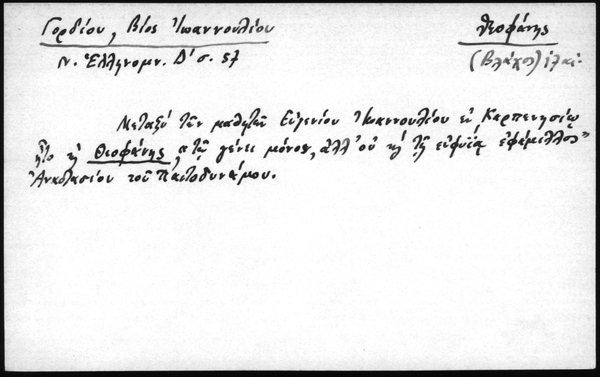 Γορδίου, Βίος Ἰωαννουλίου
Θεοφάνης
Ν. Ἑλληνομν. Δ' σ. 57
(Βλάχος)
Μεταξὺ τῶν μαθητῶν Εὐγενίου Ἰωαννουλίου ἐν Καρπενησίῳ
ἦτο κ Θεοφάνης, "τῷ γένει μόνον, ἀλλ' οὐ κ τῇ εὐφυΐᾳ ἐφάμιλλος"
Ἀναστασίου τοῦ Παντοδυνάμου.